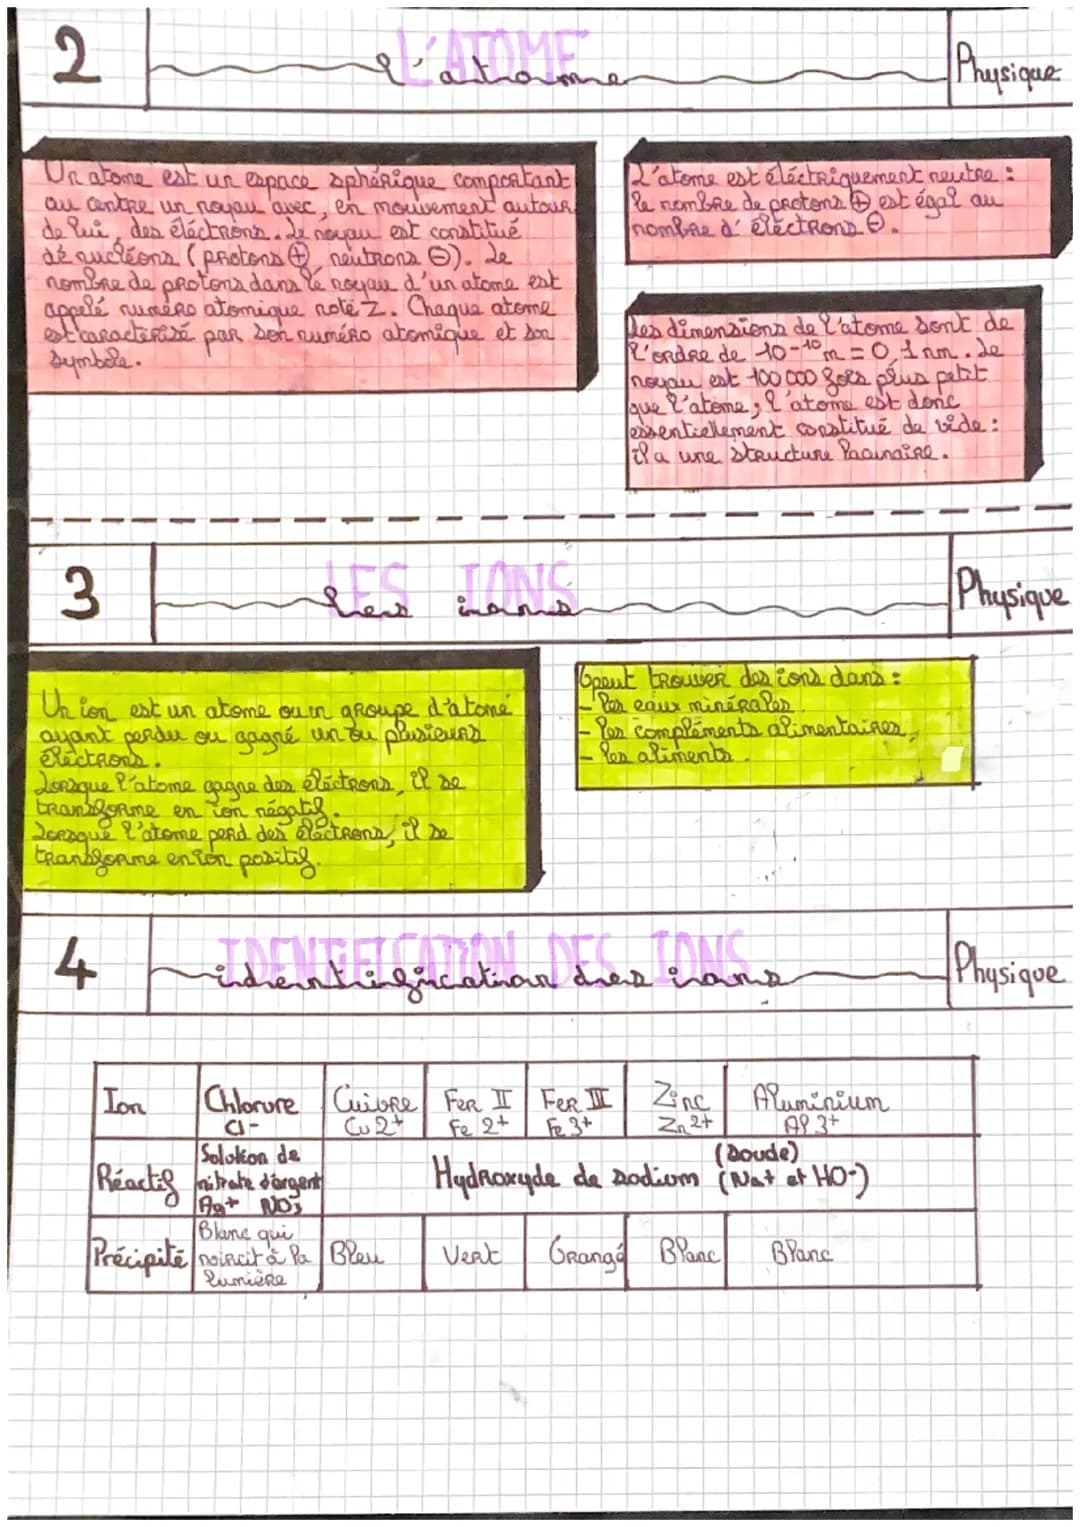 2
L'ATOME
l'atome
Physique
Un atome est un espace sphérique comportant
au centre un noyau avec, en mouvement autour
de lui, des éléctrons. Le noyau est constitué
de nucléons (protons ⊕, neutrons ⊖). Le
nombre de protons dans le noyau d'un atome est
appelé numéro atomique noté Z. Chaque atome
est caractérisé par son numéro atomique et son
symbole.
L'atome est éléctriquement neutre :
le nombre de protons ⊕ est égal au
nombre d'éléctrons ⊖.
Les dimensions de l'atome sont de
l'ordre de 10-10 m = 0,1 nm. Le
noyau est 100 000 fois plus petit
que l'atome ; l'atome est donc
essentiellement constitué de vide :
il a une structure lacunaire.
3
LES IONS
les ions
Physique
Un ion est un atome ou un groupe d'atome
ayant perdu ou gagné un ou plusieurs
éléctrons.
Lorsque l'atome gagne des éléctrons, il se
transforme en ion négatif.
Lorsque l'atome perd des éléctrons, il se
transforme en ion positif.
peut trouver des ions dans :
- les eaux minérales
- les compléments alimentaires,
- les aliments.
4
IDENTIFICATION DES IONS
identification des ions
Physique
Ion Chlorure Cuivre Fer II Fer III Zinc Aluminium
Cl- Cu2+ Fe 2+ Fe 3+ Zn 2+ Al 3+
Réactif Solution de nitrate d'argent Ag+ NO3- Hydroxyde de sodium (Soude) (Na+ et HO-)
Précipité Blanc qui noircit à la lumière Bleu Vert Orangé Blanc Blanc